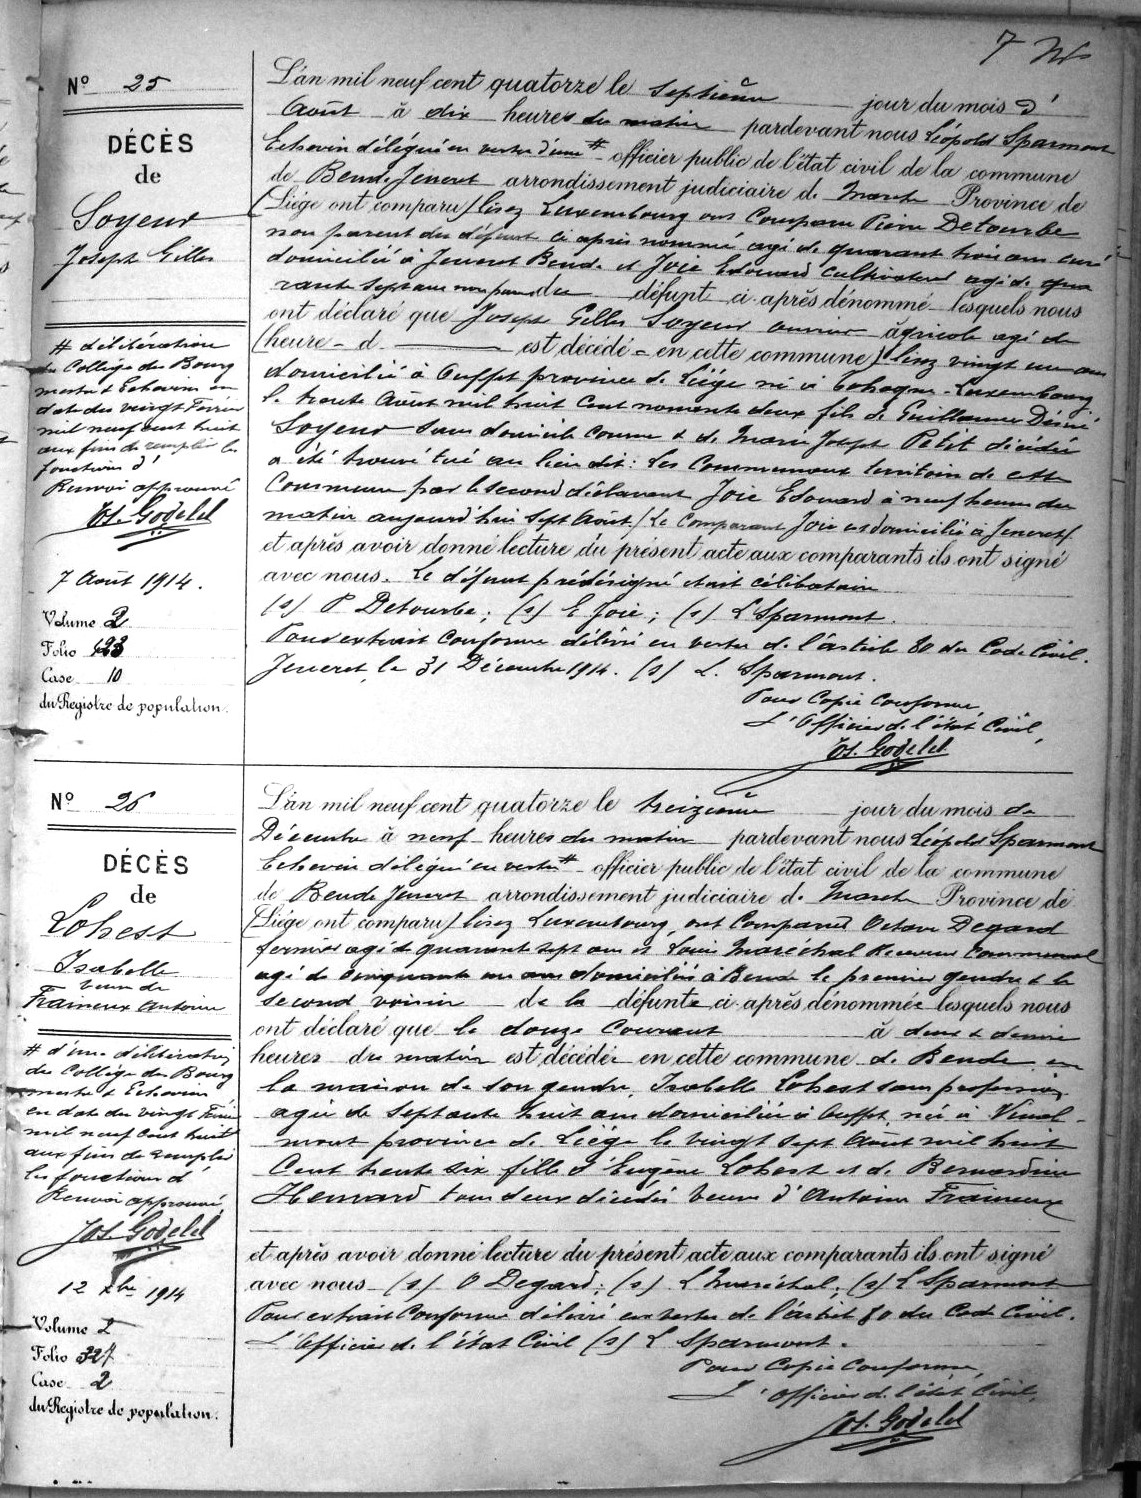 7
N° 25
DÉCÈS
de
Soyeur
Joseph Gilles
# délibération
du Collège des Bourg
mestre & Echevins en
date du vingt Février
mil neuf cent huit
aux fins de remplir les
fonctions d'
Renvoi approuvé
Jos. Godelet
7 Août 1914.
Volume 2
Folio 123
Case 10
du Registre de population.
L'an mil neuf cent quatorze le septième jour du mois d'
Août à dix heures du matin pardevant nous Léopold Sparmont
Echevin délégué en vertu d'une # officier public de l'état civil de la commune
de Bende Jeneret arrondissement judiciaire de Marche Province de
(Liége ont comparu) lisez Luxembourg ont Comparu Pierre Detourbe
non parent du défunt ci après nommé agé de quarant trois ans curé
domicilié à Jeneret Bende et Joie Edouard Cultivateur agé de qua
rante sept ans non parent du défunt ci-après dénommé lesquels nous
ont déclaré que Joseph Gilles Soyeur ouvrier agricole agé de
(heure - d est décédé - en cette commune) lisez vingt un ans
domicilié à Ouffet province de Liége né à Tohogne - Luxembourg
le trente Août mil huit cent nonante deux fils de Guillaume Désiré
Soyeur sans domicile connu & de Marie Joseph Petit décédée
a été trouvé tué au lieu dit: Les Communaux territoire de cette
Commune par le second déclarant Joie Edouard à neuf heures du
matin aujourd'hui sept Août / Le Comparant Joie est domicilié à Jeneret /
et après avoir donné lecture du présent acte aux comparants ils ont signé
avec nous. Le défunt prédésigné était célibataire
(s) P Detourbe; (s) E Joie; (s) L Sparmont.
Pour extrait conforme délivré en vertu de l'article 80 du Code Civil.
Jeneret, le 31 Décembre 1914. (s) L. Sparmont.
Pour Copie Conforme,
L'Officier de l'état Civil,
Jos. Godelet
N° 26
DÉCÈS
de
Lohest
Isabelle
veuve de
Fraineux Antoine
# d'une délibération
du Collège des Bourg
mestre & Echevins
en date du vingt Février
mil neuf cent huit
aux fins de remplir
les fonctions d'
Renvoi approuvé,
Jos. Godelet
12 Xbre 1914
Volume 2
Folio 327
Case 2
du Registre de population.
L'an mil neuf cent quatorze le treizième jour du mois de
Décembre à neuf heures du matin pardevant nous Léopold Sparmont
Echevin délégué en vertu # officier public de l'état civil de la commune
de Bende Jeneret arrondissement judiciaire de Marche Province de
(Liége ont comparu) lisez Luxembourg, ont Comparu Octave Degard
fermier agé de quarante sept ans et Louis Maréchal Receveur Communal
agé de cinquante un ans domiciliés à Bende le premier gendre & le
second voisin de la défunte ci-après dénommée lesquels nous
ont déclaré que le douze Courant à deux & demie
heures du matin est décédée en cette commune de Bende en
la maison de son gendre, Isabelle Lohest sans profession
agée de septante huit ans domiciliée à Ouffet, née à Vinal-
mont province de Liége le vingt sept Août mil huit
Cent trente six fille d'Eugène Lohest et de Bernardine
Henrard tous deux décédés veuve d'Antoine Fraineux
et après avoir donné lecture du présent acte aux comparants ils ont signé
avec nous (s) O Degard; (s) L Maréchal; (s) L Sparmont
Pour extrait Conforme délivré en vertu de l'article 80 du Code Civil.
L'Officier de l'état Civil (s) L Sparmont.
Pour Copie Conforme,
L'Officier de l'état Civil,
Jos. Godelet